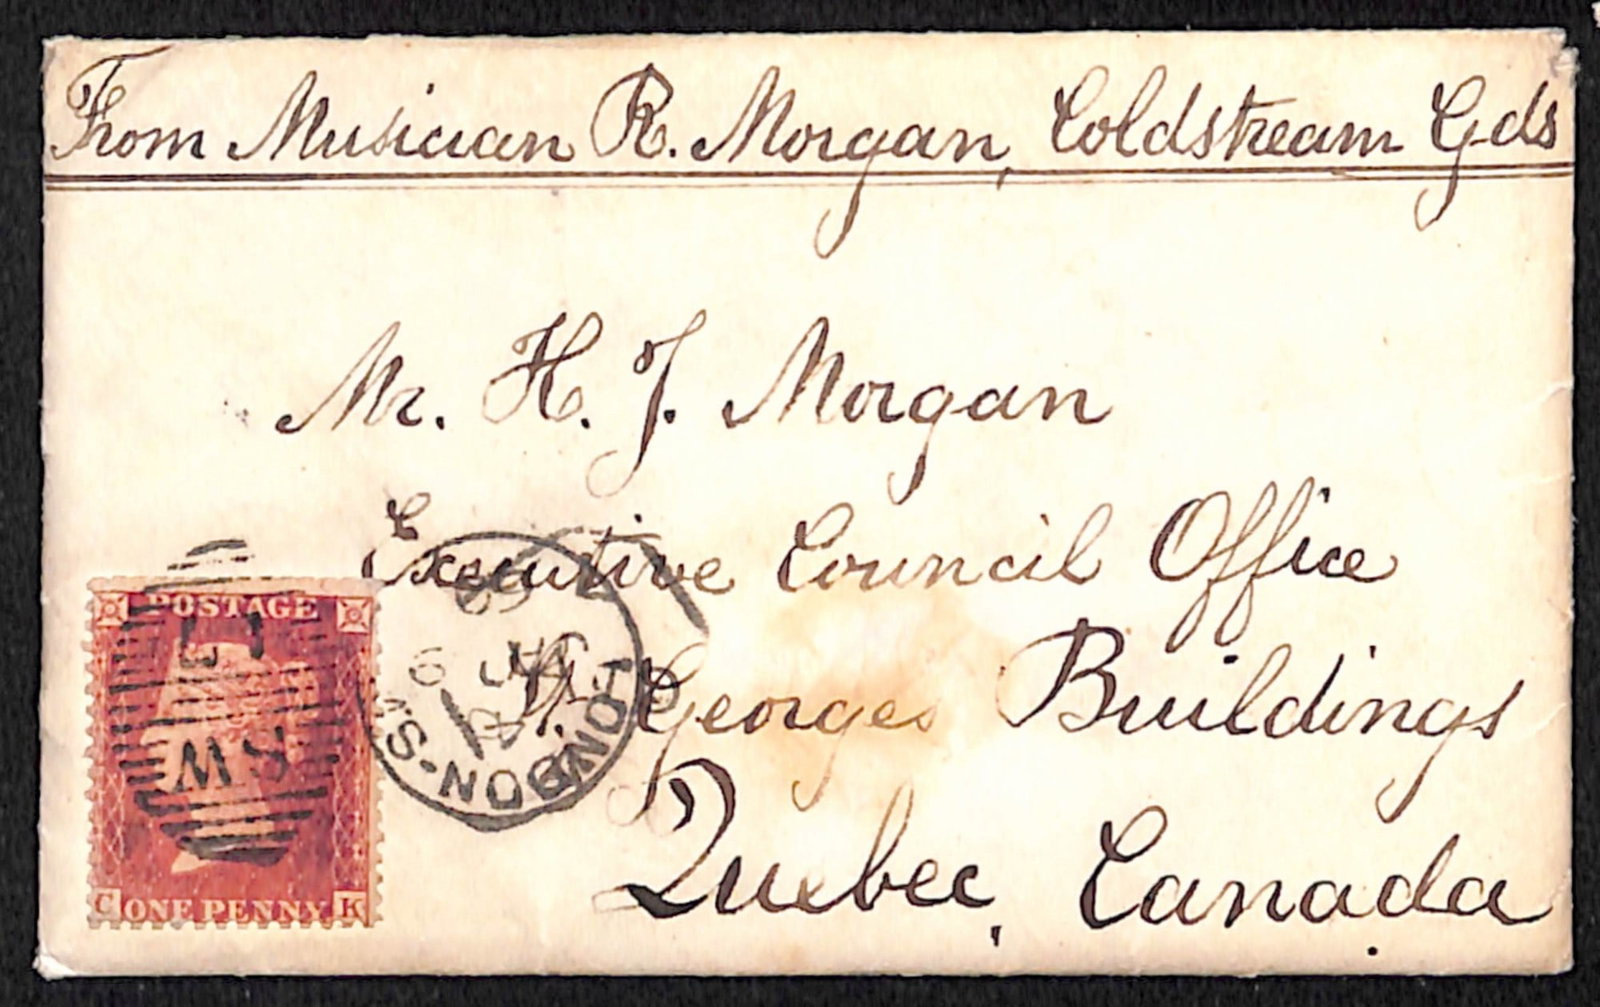 From Musician R. Morgan, Coldstream Gds
Mr. H. J. Morgan
Executive Council Office
St. Georges Buildings
Quebec, Canada.
POSTAGE
SW
C ONE PENNY K
LONDON-S.W
JA